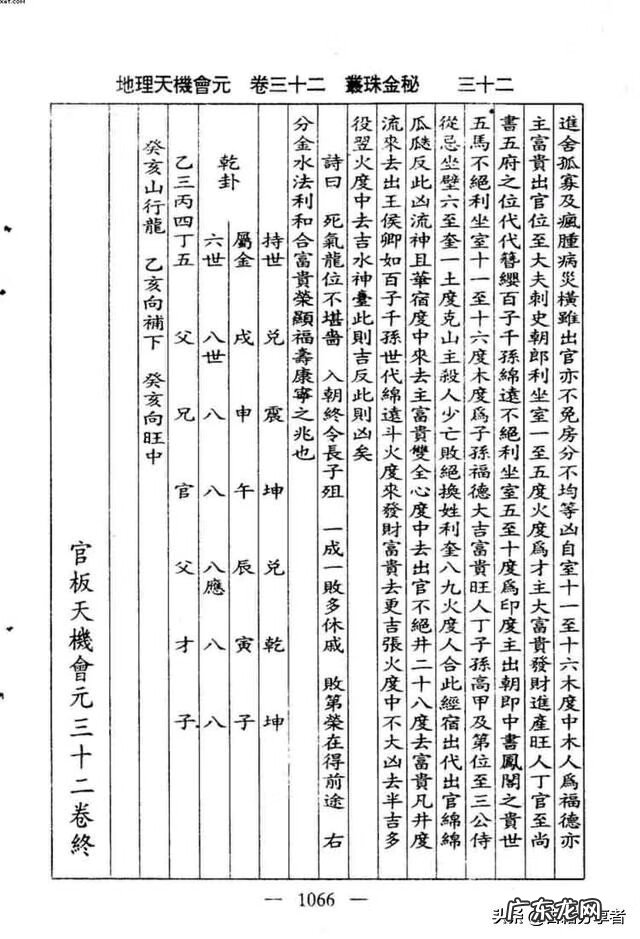 xet.com
地理天機會元　卷三十二　叢珠金秘　三十二
進舍孤寡及瘋腫病災橫雖出官亦不免房分不均等凶自室十一至十六木度中木人爲福德亦
主富貴出官位至大夫刺史朝郎利坐室一至五度火度爲才主大富貴發財進產旺人丁官至尚
書五府之位代代簪纓百子千孫綿遠不絕利坐室五至十度爲印度主出朝即中書鳳閣之貴世
五馬不絕利坐室十一至十六度木度爲子孫福德大吉富貴旺人丁子孫高甲及第位至三公侍
從忌坐壁六至奎一土度克山主殺人少亡敗絕換姓利奎八九火度人合此經宿出代出官綿綿
瓜瓞反此凶流神且華宿度中來去主富貴雙全心度中去出官不絕井二十八度去富貴凡井度
流來去出王侯卿如百子千孫世代綿遠斗火度來發財富貴去更吉張火度中不大凶去半吉多
役翌火度中去吉水神臺此則吉反此則凶矣
詩曰　死氣龍位不堪嗇　入朝終令長子殂　一成一敗多休戚　敗第榮在得前途　右
分金水法利和合富貴榮顯福壽康寧之兆也
持世　兌　震　坤　兌　乾　坤
屬金　戌　申　午　辰　寅　子
乾卦
六世　八世　八　八　八應　八　八
乙三丙四丁五　父　兄　官　父　才　子
癸亥山行龍　乙亥向補下　癸亥向旺中
官板天機會元三十二卷終
— 1066 —
广东龙网